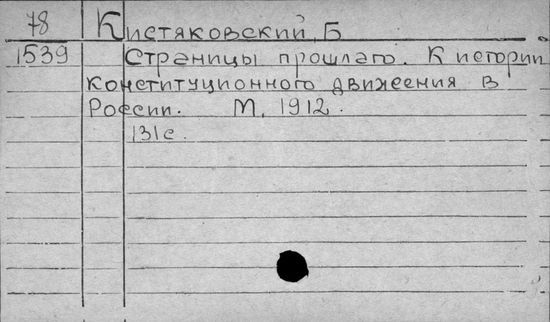 78 Кистяковский, Б
1539 Страницы прошлаго. К истории
конституционного движения в
России. М, 1912.
131 с.